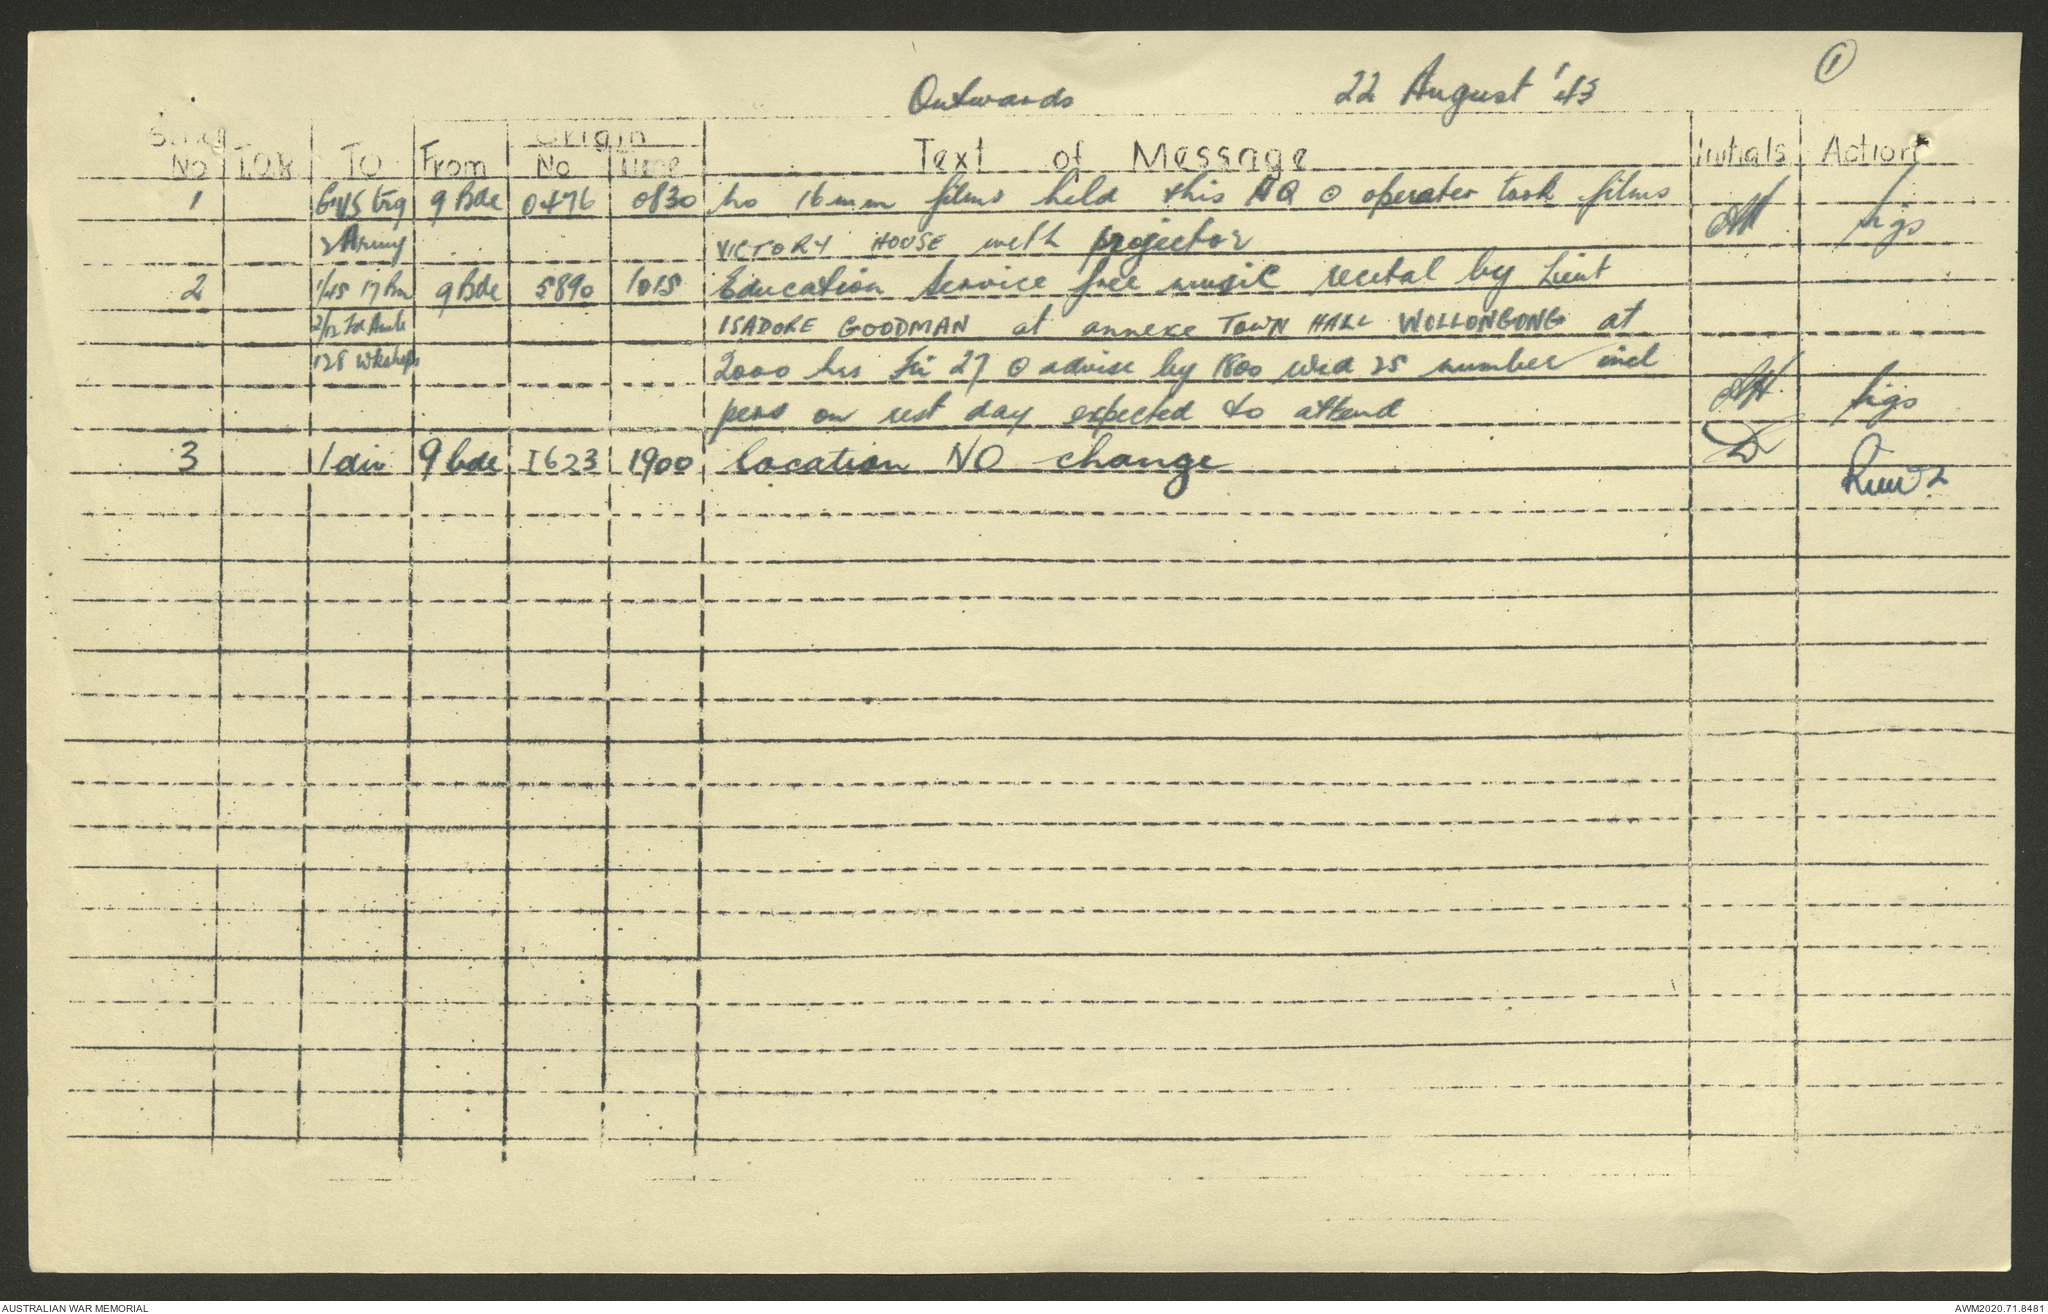 ①
Outwards 22 August '43
Serial Origin
No TOR To From No Time Text of Message Initials Action
1 Trg 9 Bde 0476 0830 no 16mm films held this HQ ⊙ operator took films
2 Army VICTORY HOUSE with projector Sigs
2 1/45 17 Bn 9 Bde 5890 1015 Education Service free music recital by Lieut
2/12 Fd Amb ISADORE GOODMAN at annexe TOWN HALL WOLLONGONG at
128 Wkshops 2000 hrs Fri 27 ⊙ advise by 1800 wed 25 number incl
pers on rest day expected to attend Sigs
3 1 div 9 bde I623 1900 location NO change
AUSTRALIAN WAR MEMORIAL AWM2020.71.8481